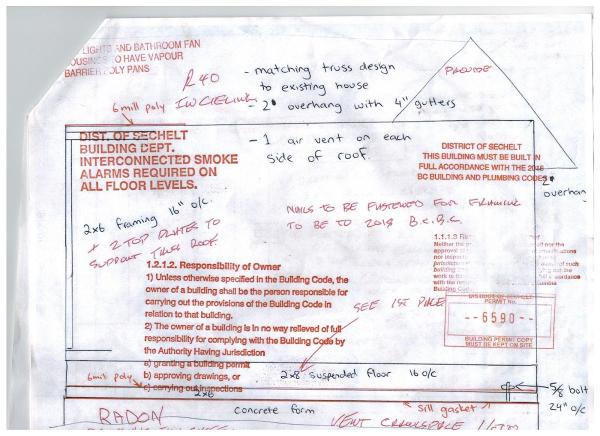 LIGHTS AND BATHROOM FAN
HOUSINGS TO HAVE VAPOUR
BARRIER POLY PANS
R40
IN CIELING
6 mill poly
- matching truss design
to existing house
- 2' overhang with 4" gutters
- 1 air vent on each
side of roof.
PROVIDE
DIST. OF SECHELT
BUILDING DEPT.
INTERCONNECTED SMOKE
ALARMS REQUIRED ON
ALL FLOOR LEVELS.
DISTRICT OF SECHELT
THIS BUILDING MUST BE BUILT IN
FULL ACCORDANCE WITH THE
BC BUILDING AND PLUMBING CODES
2'
overhang
2x6 framing 16" o/c.
+ 2 TOP PLATES TO
SUPPORT TRUSS ROOF.
NAILS TO BE FASTENED FOR FRAMING
TO BE TO 2018 B.C.B.C
1.2.1.2. Responsibility of Owner
1) Unless otherwise specified in the Building Code, the
owner of a building shall be the person responsible for
carrying out the provisions of the Building Code in
relation to that building.
2) The owner of a building is in no way relieved of full
responsibility for complying with the Building Code by
the Authority Having Jurisdiction
a) granting a building permit
b) approving drawings, or
c) carrying out inspections
1.1.1.3
Neither the
approval of
nor inspections
jurisdiction
building
work to
with the
Building Code
SEE 1ST PAGE
DISTRICT OF SECHELT
PERMIT No.
--6590--
BUILDING PERMIT COPY
MUST BE KEPT ON SITE
6 mill poly
2x8 suspended floor 16 o/c
2x6
5/8 bolt
24" o/c
sill gasket
RADON
concrete form
VENT CRAWLSPACE